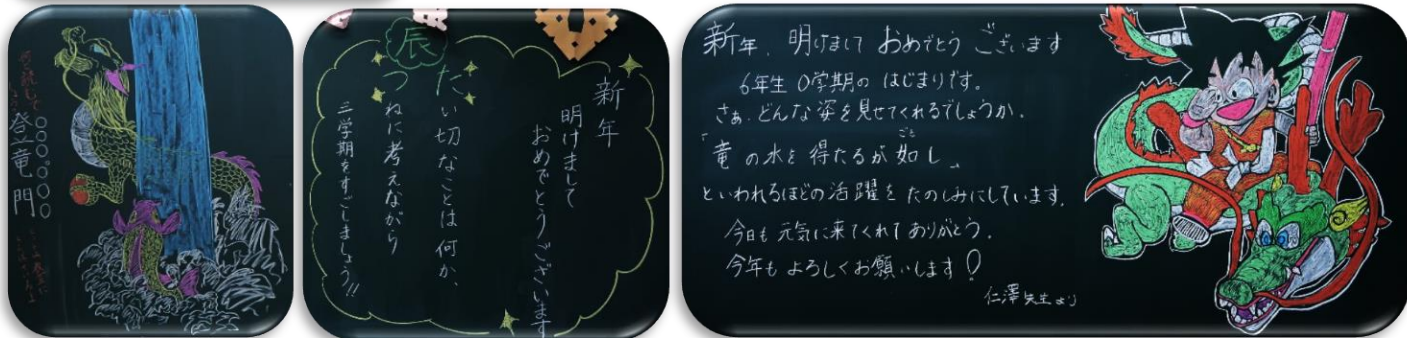 登竜門
新年
明けまして
おめでとうございます
辰
たい切なことは何か、
つねに考えながら
三学期をすごしましょう!!
新年、明けまして おめでとう ございます
6年生 0学期の はじまりです。
さぁ、どんな姿を見せてくれるでしょうか。
「竜の水を得たるが如し」
ごと
といわれるほどの活躍を たのしみにしています。
今日も元気に来てくれて ありがとう。
今年も よろしくお願いします!
仁澤先生より